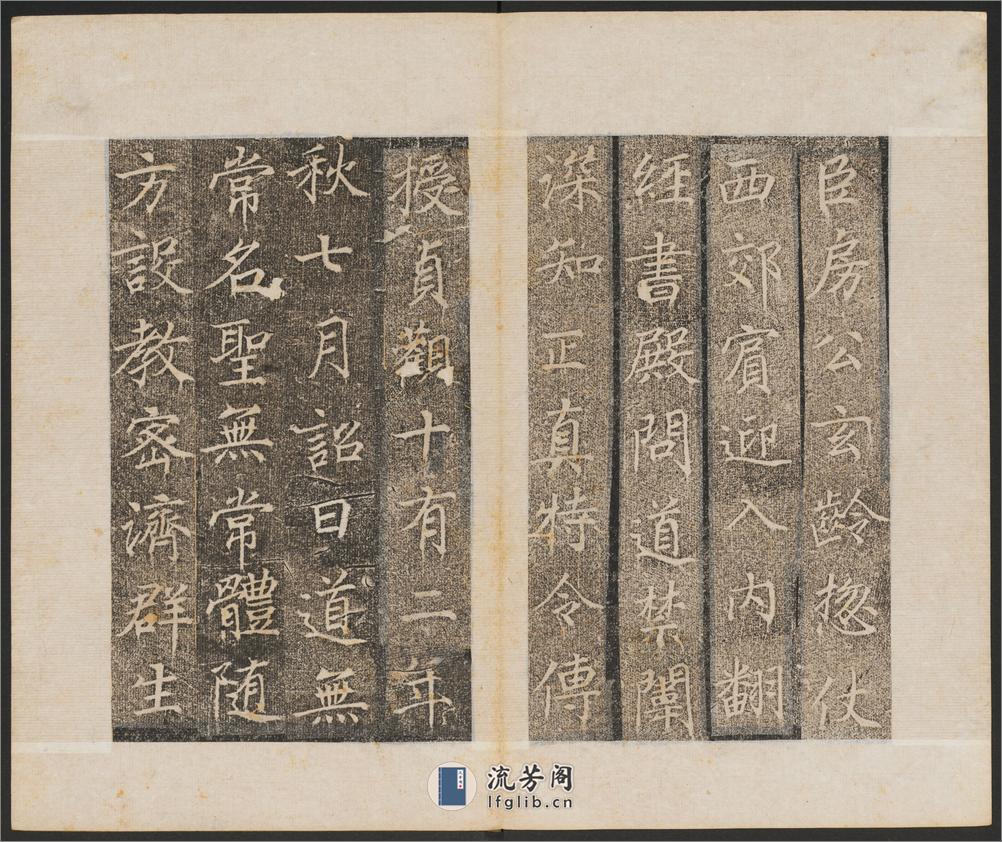 臣房公玄齡惣仗
西郊賓迎入內翻
經書殿問道禁闈
深知正真特令傳
授貞觀十有二年
秋七月詔曰道無
常名聖無常體随
方設教密濟群生
流芳阁
lfglib.cn